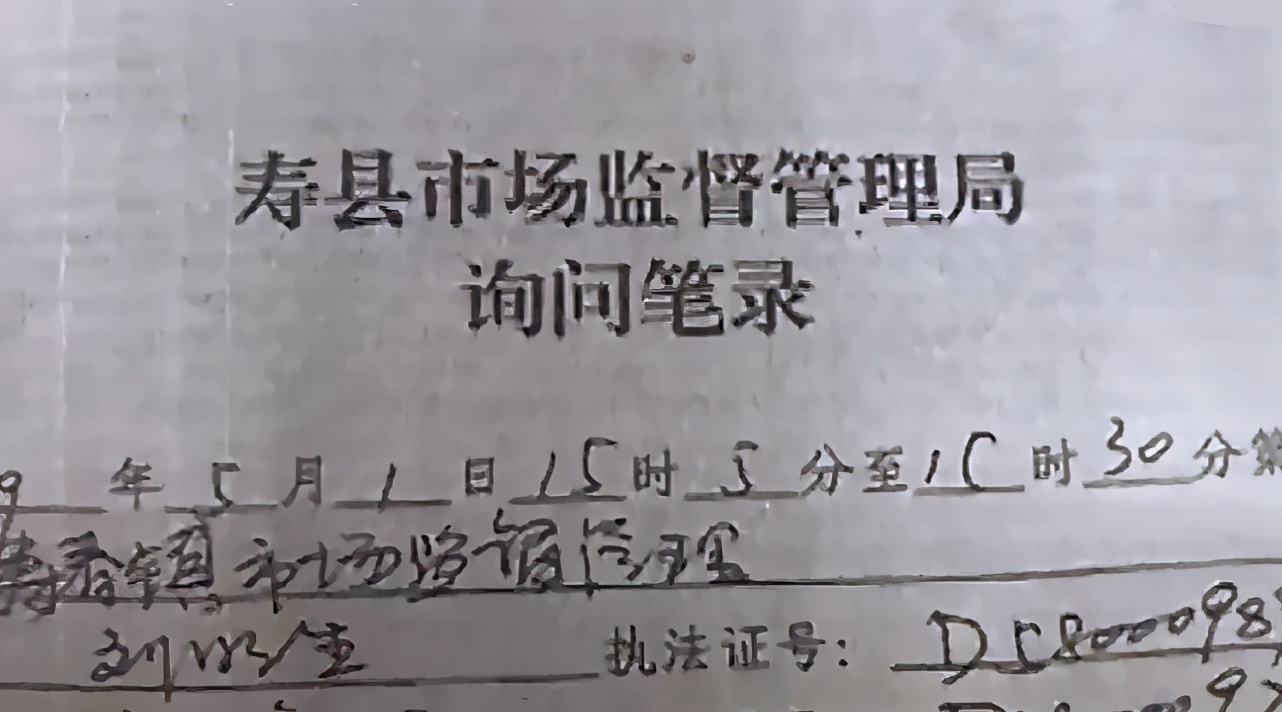 寿县市场监督管理局
询问笔录
9年5月1日15时5分至15时30分
寿春镇市场监督管理
执法证号：DC800098